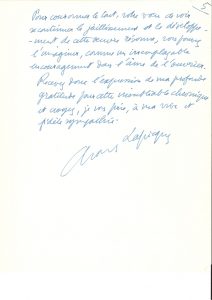 Pour couronner le tout, votre vœu de voir
se continuer le jaillissement et le développe-
ment de cette œuvre résonne, vous pouvez
l'imaginer, comme un irremplaçable
encouragement dans l'âme de l'ouvrier.
Recevez donc l'expression de ma profonde
gratitude pour cette inoubliable chronique
et croyez, je vous prie, à ma vive et
fidèle sympathie.
Lapicque